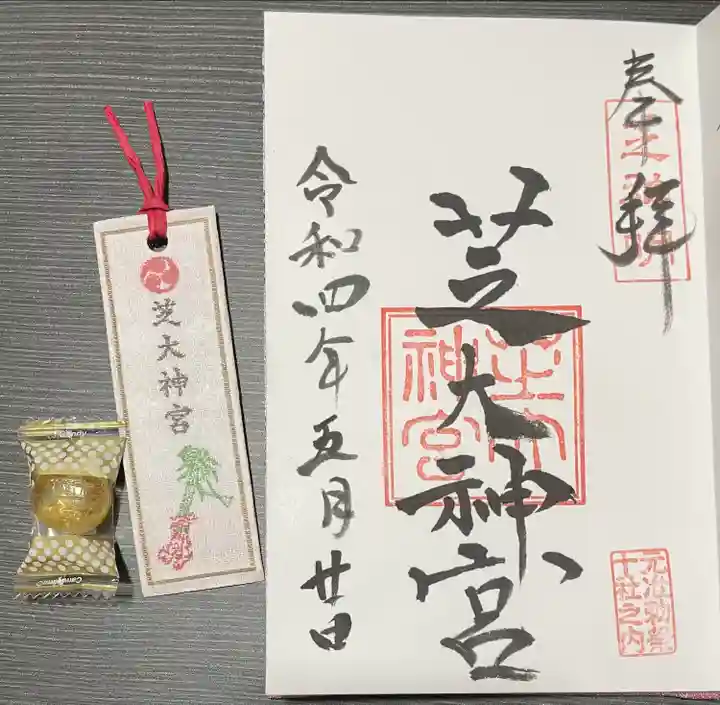 奉拝
芝大神宮
令和四年五月廿日
芝大神宮
元治勅祭
十社之内
芝大
神宮
Candy